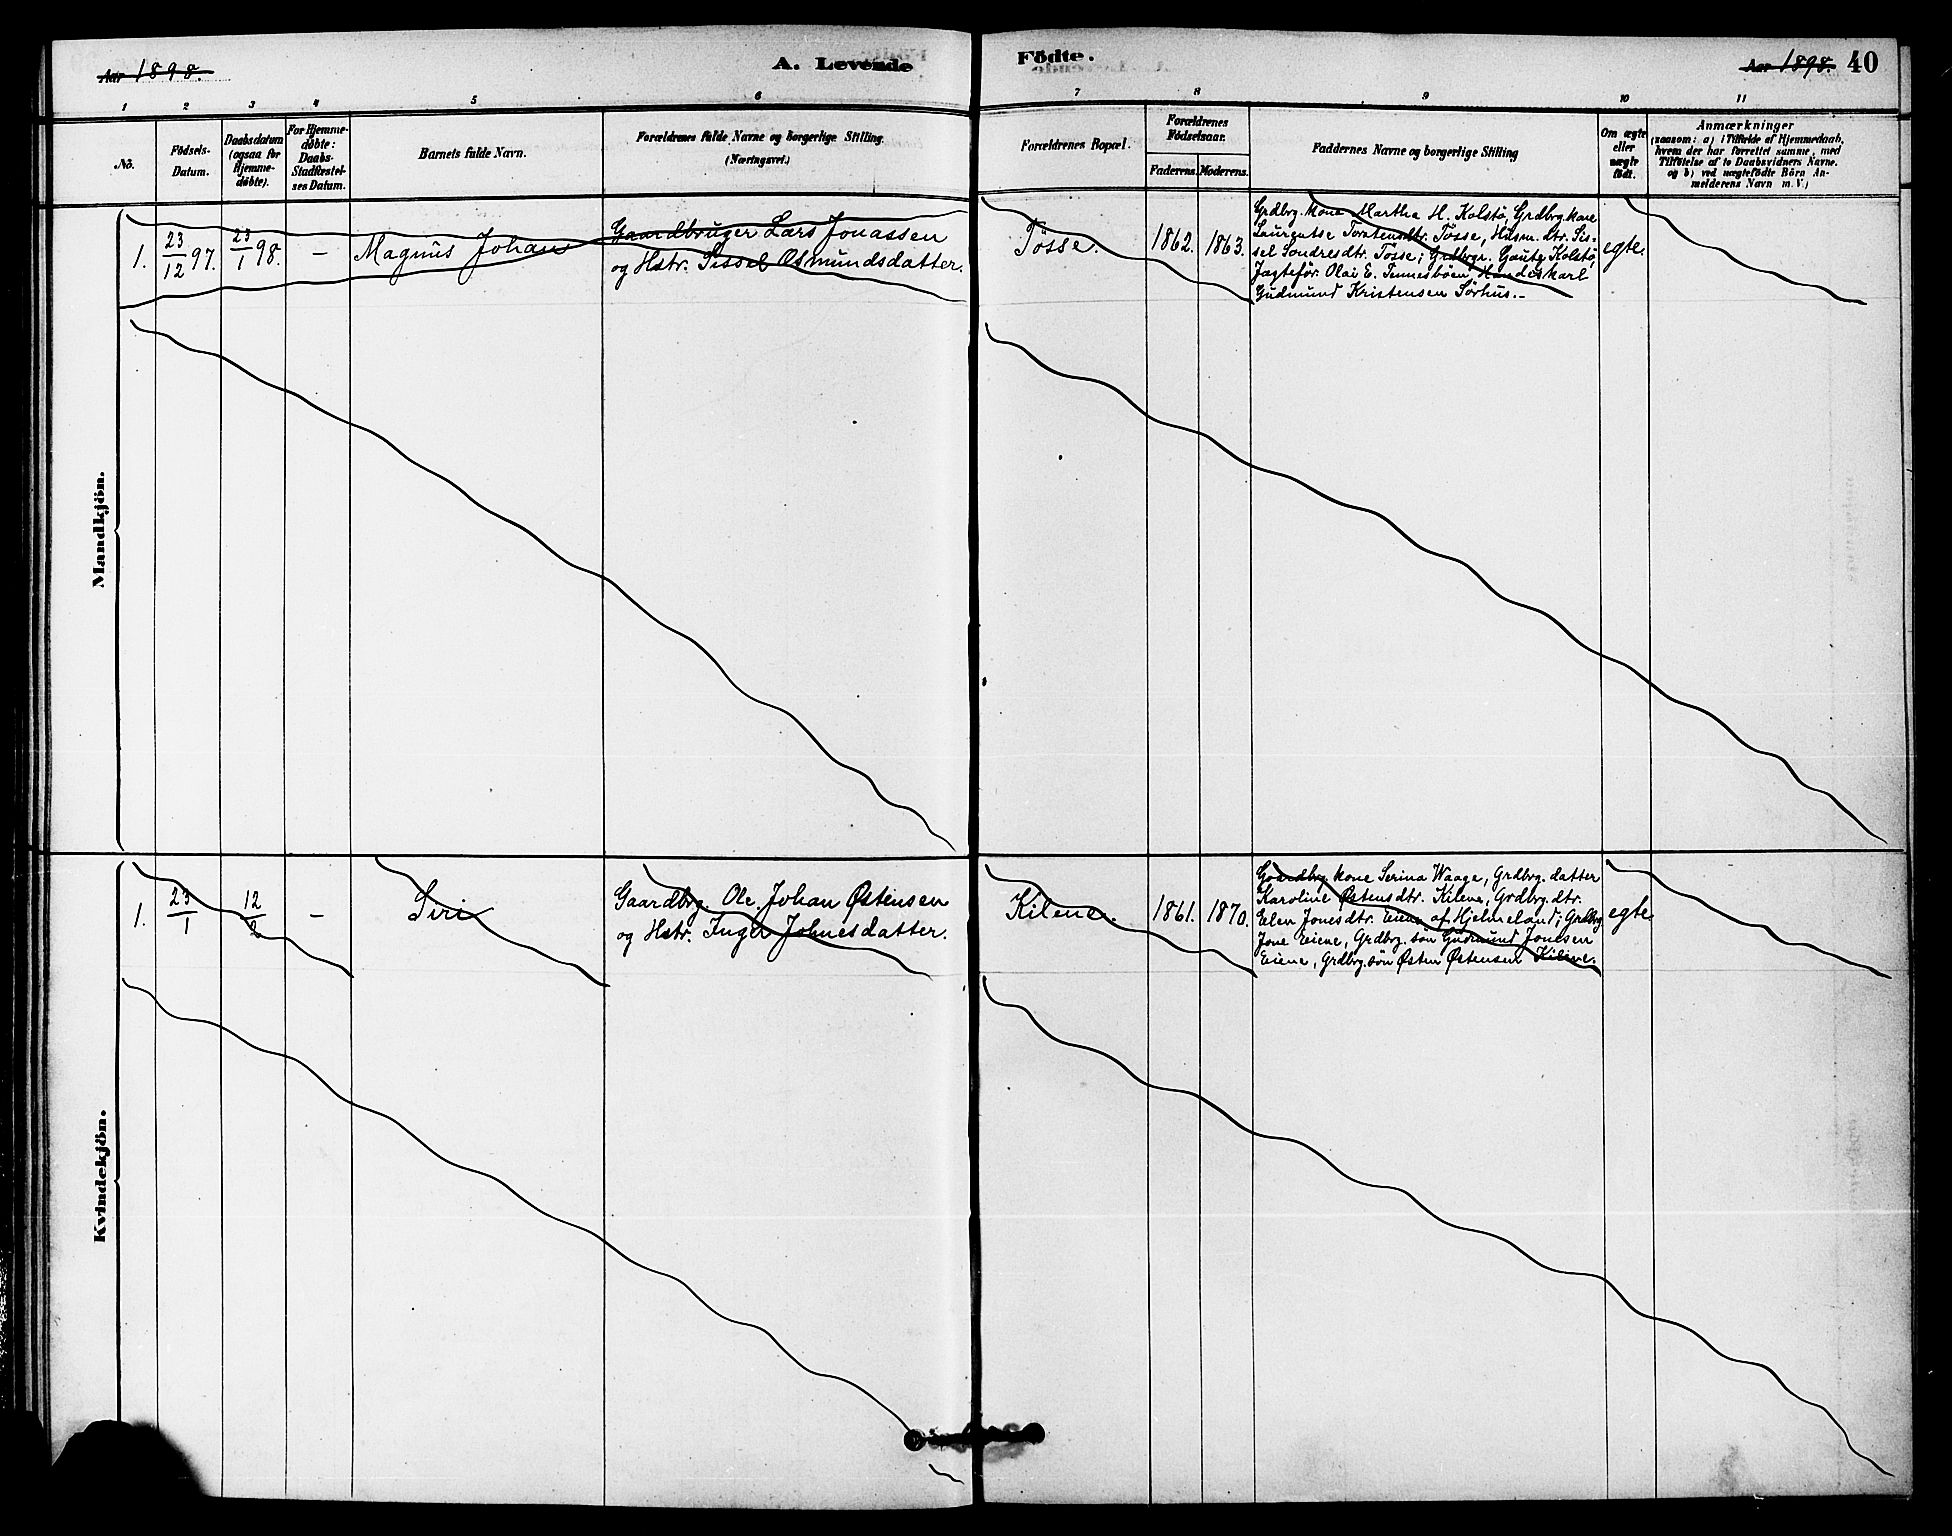 Aar 1898.
A. Levende
Fødte.
Aar 1898. 40
1 2 3 4 5 6 7 8 9 10 11
No.
Fødsels-
Datum.
Daabsdatum
(ogsaa for
Hjemme-
døbte).
For Hjemme-
døbte:
Daabs-
Stadfæstel-
ses Datum.
Barnets fulde Navn.
Forældrenes fulde Navne og borgerlige Stilling
(Næringsvei.)
Forældrenes Bopæl.
Forældrenes
Fødselsaar.
Faderens. Moderens.
Faddernes Navne og borgerlige Stilling
Om ægte
eller
uægte
født.
Anmærkninger
(saasom: a) i Tilfælde af Hjemmedaab,
hvem der har forrettet samme, med
Tilføielse af to Daabsvidners Navne.
og b) ved uægtefødte Børn An-
melderens Navn m. V.)
Mandkjøn.
1.
23/12 97.
23/1 98.
–
Magnus Johan
Gaardbruger Lars Jonassen
og Hstr. Sissel Osmundsdatter.
Tøsse.
1862.
1863.
Grdbrg. kone Martha H. Kolstø, Grdbrg. kone
Laurentse Torstensdtr. Tøsse, Husm. dtr. Sis-
sel Sondresdtr. Tøsse; Grdbrgr. Gaute Kolstø,
Jagtefør. Olai E. Tennesbøen, Handelskarl
Gudmund Kristensen Sørhus.–
egte.
Kvindekjøn.
1.
23/1
12/2
–
Siri
Gaardbrg. Ole Johan Østensen
og Hstr. Inger Johnesdatter.
Kilene.
1861.
1870.
Gaardbrg. kone Serina Waage, Grdbrg. datter
Karoline Østensdtr. Kilene, Grdbrg. dtr.
Elen Jonesdtr. Eiene af Hjelmeland; Grdbrg
Jone Eiene, Grdbrg. søn Gudmund Jonesen
Eiene, Grdbrg. søn Østen Østensen Kilene.
egte.